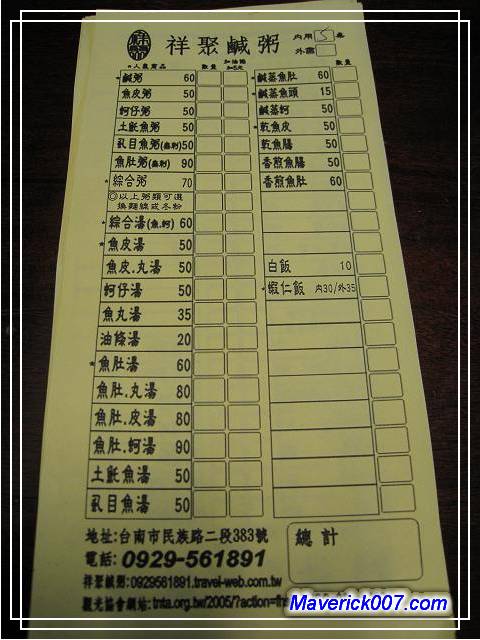 祥聚鹹粥
內用 5 桌
外需
*人氣商品 數量 加油條 加5元 數量
*鹹粥 60
魚皮粥 50
蚵仔粥 50
土魠魚粥 50
虱目魚粥(無刺) 50
魚肚粥(無刺) 90
*綜合粥 70
◎以上粥類可選
換麵線或冬粉
*綜合湯(魚.蚵) 60
*魚皮湯 50
魚皮.丸湯 50
蚵仔湯 50
魚丸湯 35
油條湯 20
*魚肚湯 60
魚肚.丸湯 80
魚肚.皮湯 80
魚肚.蚵湯 90
土魠魚湯 50
虱目魚湯 50
*鹹蒸魚肚 60
*鹹蒸魚頭 15
鹹蒸蚵 50
*乾魚皮 50
乾魚腸 50
香煎魚腸 50
香煎魚肚 60
白飯 10
*蝦仁飯 內30/外35
地址:台南市民族路二段383號
電話: 0929-561891
祥聚鹹粥:0929561891.travel-web.com.tw
觀光協會網站:tnta.org.tw/2005/?action=
總計
Maverick007.com